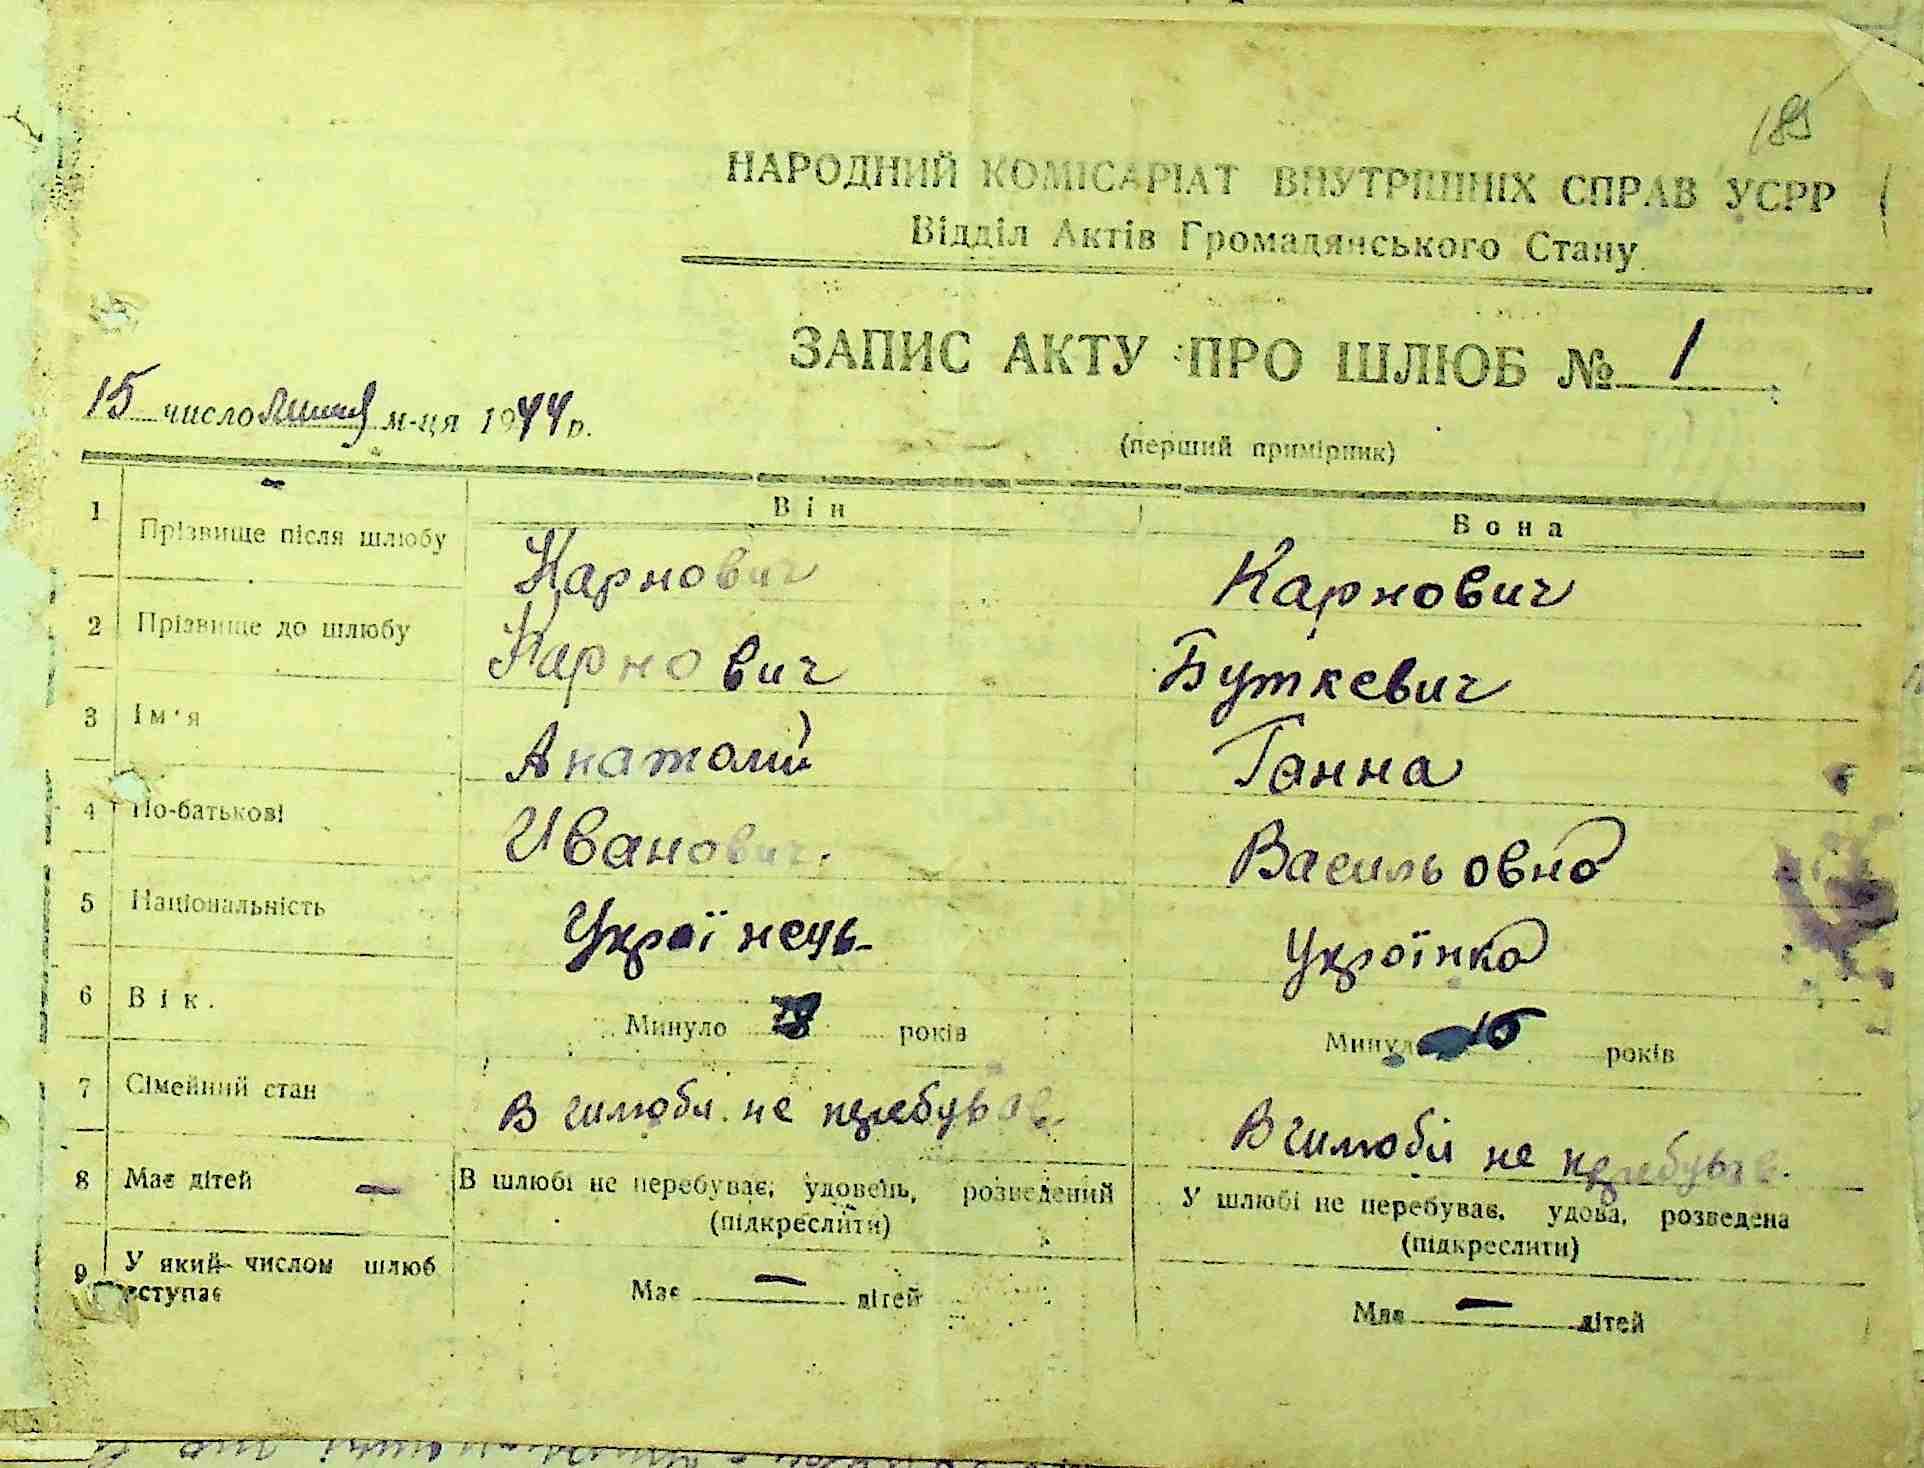 189
НАРОДНИЙ КОМІСАРІАТ ВНУТРІШНІХ СПРАВ УСРР
Відділ Актів Громадянського Стану
ЗАПИС АКТУ ПРО ШЛЮБ № 1
15 число липня м-ця 1944 р.
(перший примірник)
Він Вона
1 Прізвище після шлюбу Карнович Карнович
2 Прізвище до шлюбу Карнович Буткевич
3 Ім'я Анатолій Ганна
4 По-батькові Иванович. Васильовна
5 Національність Українець Українка
6 Вік. Минуло років Минуло років
7 Сімейний стан В шлюбі не перебував. В шлюбі не
В шлюбі не перебуває, удовень, розведений У шлюбі не перебуває, удова, розведена
(підкреслити) (підкреслити)
8 Має дітей — Має — дітей Має — дітей
9 У який числом шлюб
вступає